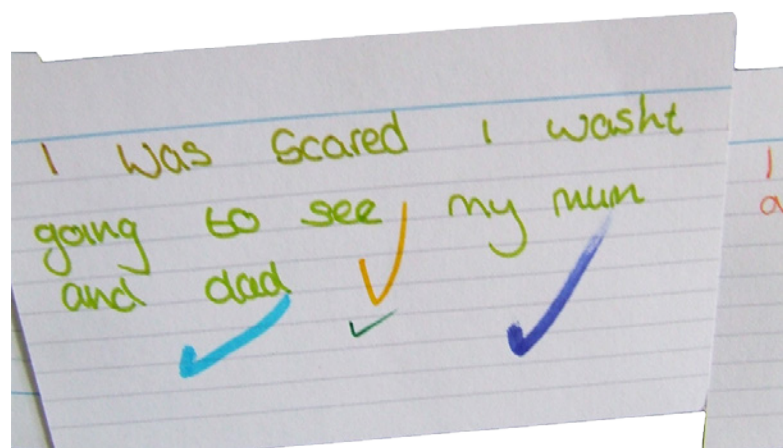 I was scared I washt
going to see my mum
and dad
I
a